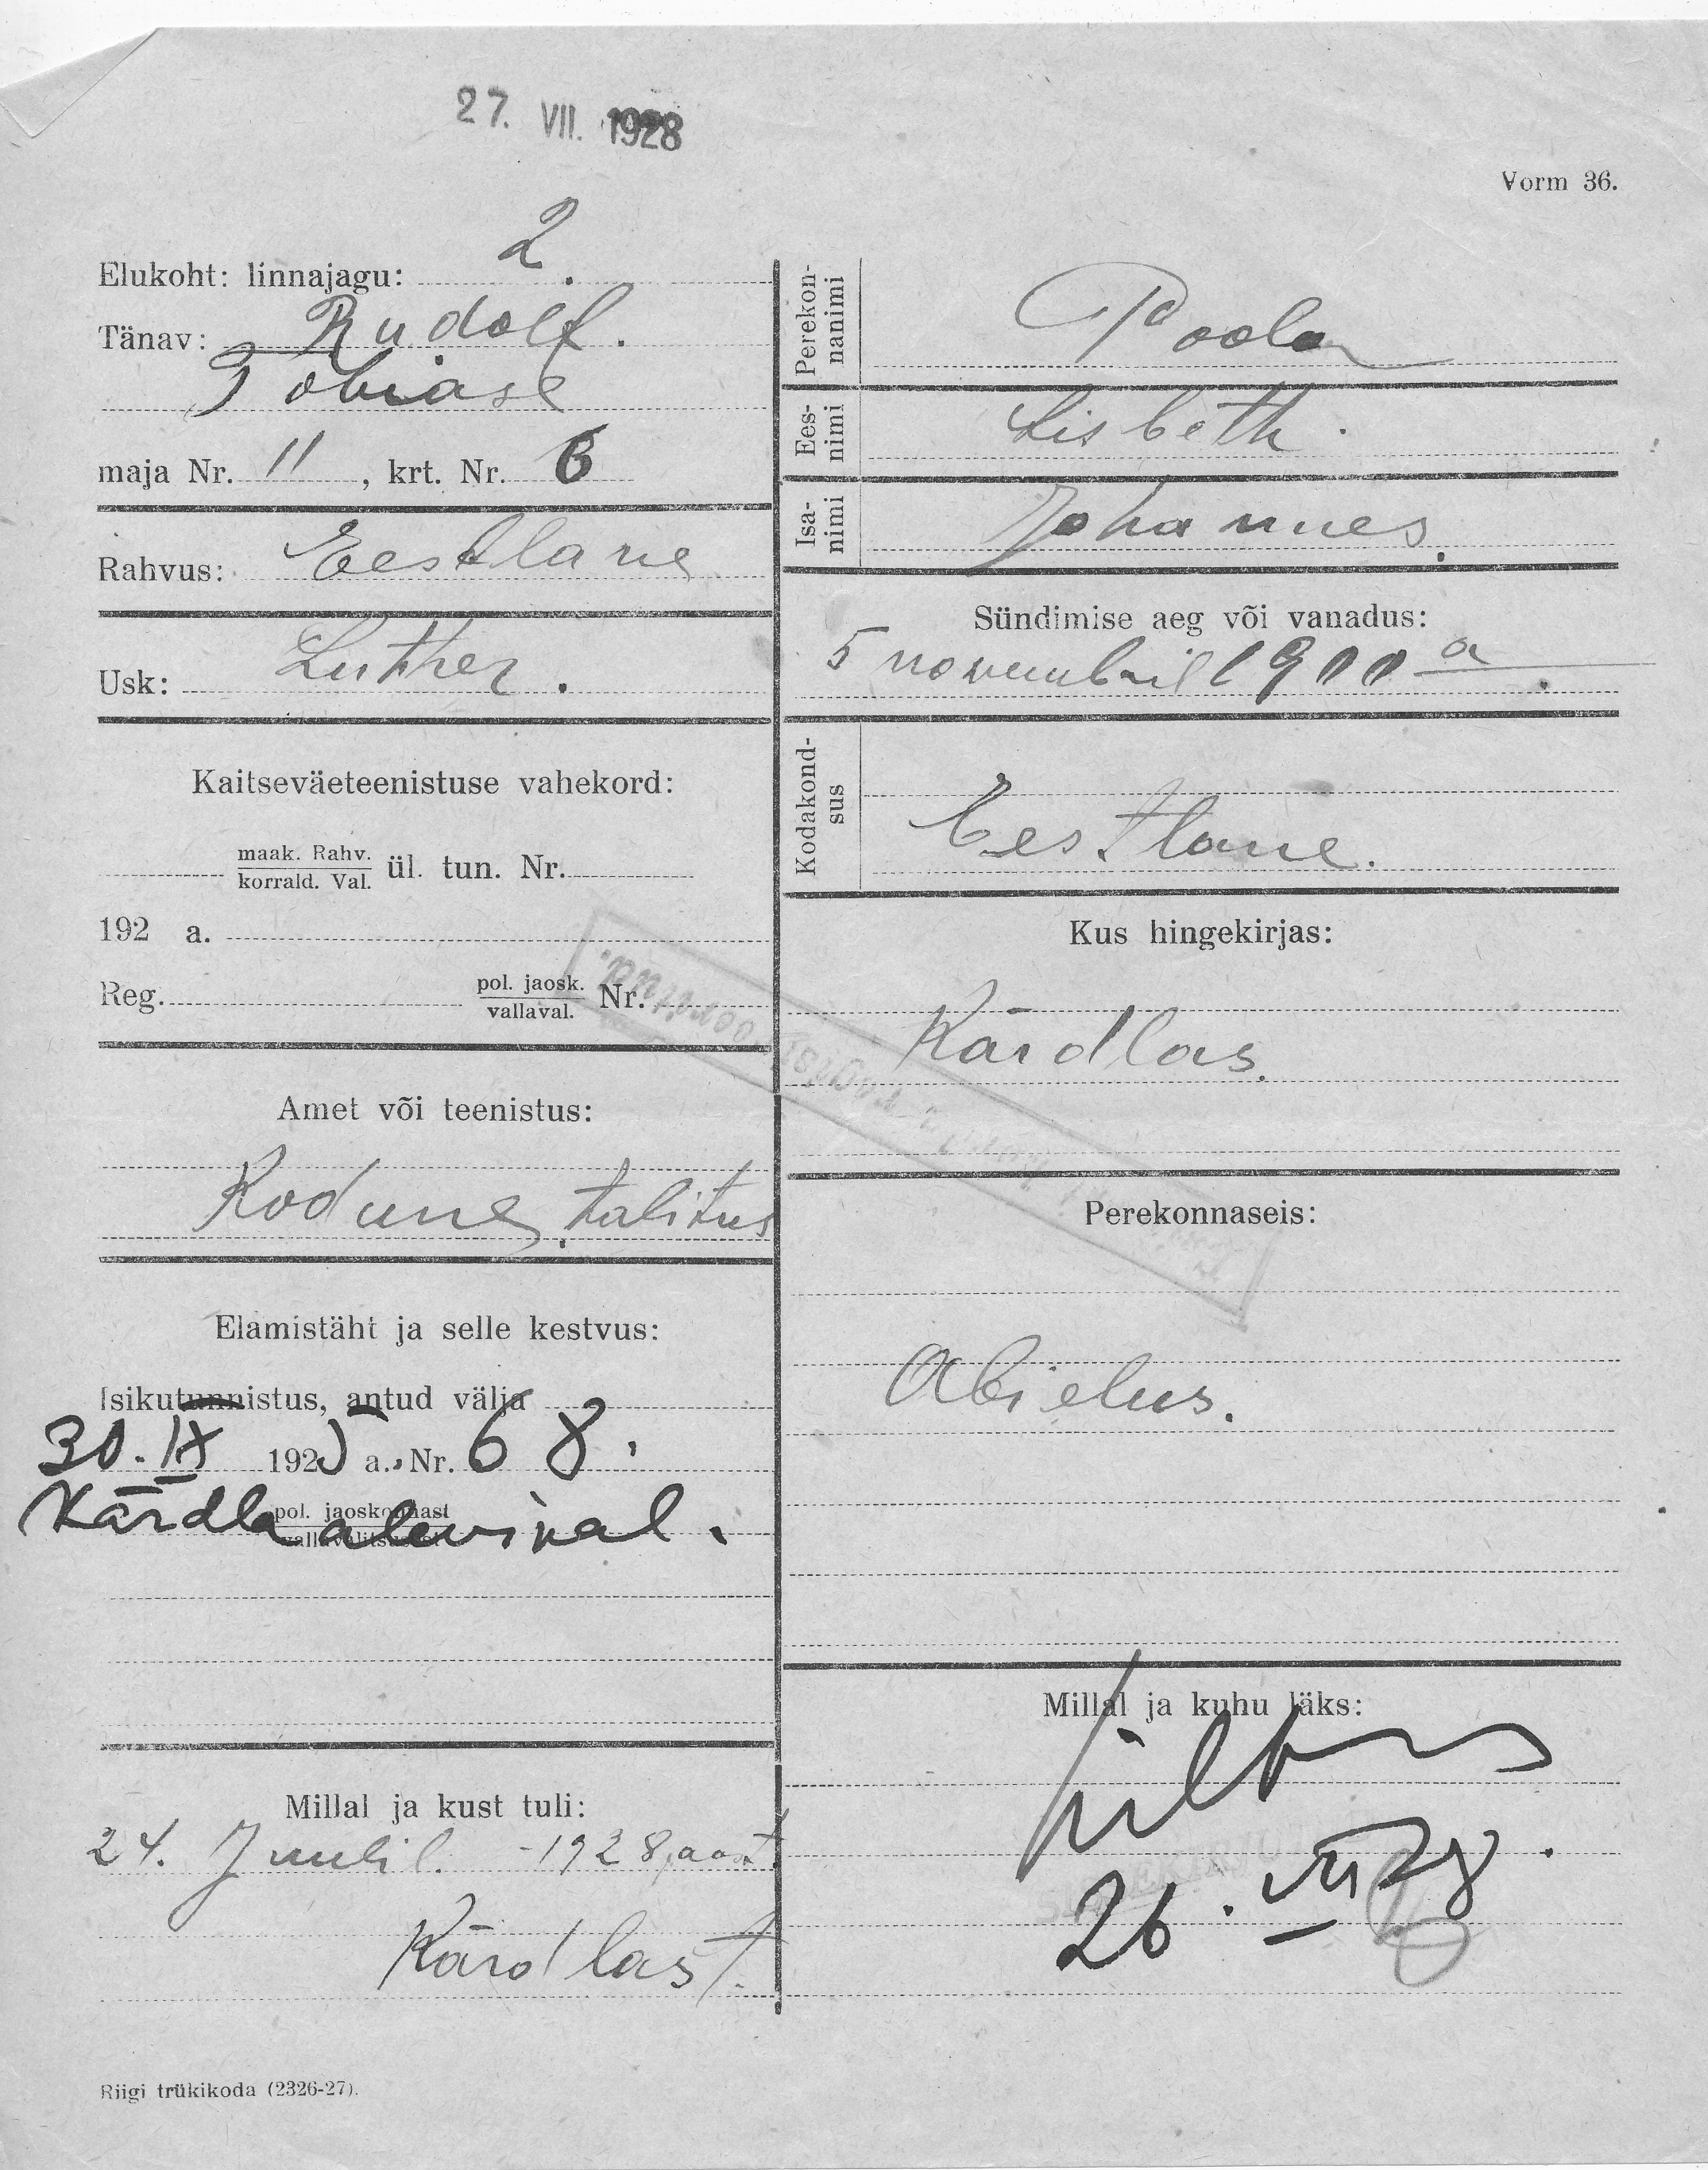 27. VII. 1928
Vorm 36.
Elukoht: linnajagu: 2.
Tänav: Rudolf.
Tobiase
maja Nr. 11, krt. Nr. 6
Rahvus: Eestlane
Usk: Luther.
Kaitseväeteenistuse vahekord:
maak. Rahv.
korrald. Val. ül. tun. Nr.
192 a.
Reg. pol. jaosk. Nr.
vallaval.
Amet või teenistus:
Kodune talitus
Elamistäht ja selle kestvus:
Isikutunnistus, antud välja
30. IX 1925 a. Nr. 68.
pol. jaoskonnast
Kärdla alevival.
vallavalitsusest
Millal ja kust tuli:
24. Juulil. 1928 aast.
Kärdlast.
Riigi trükikoda (2326-27).
Perekonnanimi
Eesnimi Lisbeth.
Isanimi Johannes.
Sündimise aeg või vanadus:
5 novembril 1900 a.
Kodakondsus
Eestlane.
Kus hingekirjas:
Kärdlas.
Perekonnaseis:
Abielus.
Millal ja kuhu läks:
26. VII 28.